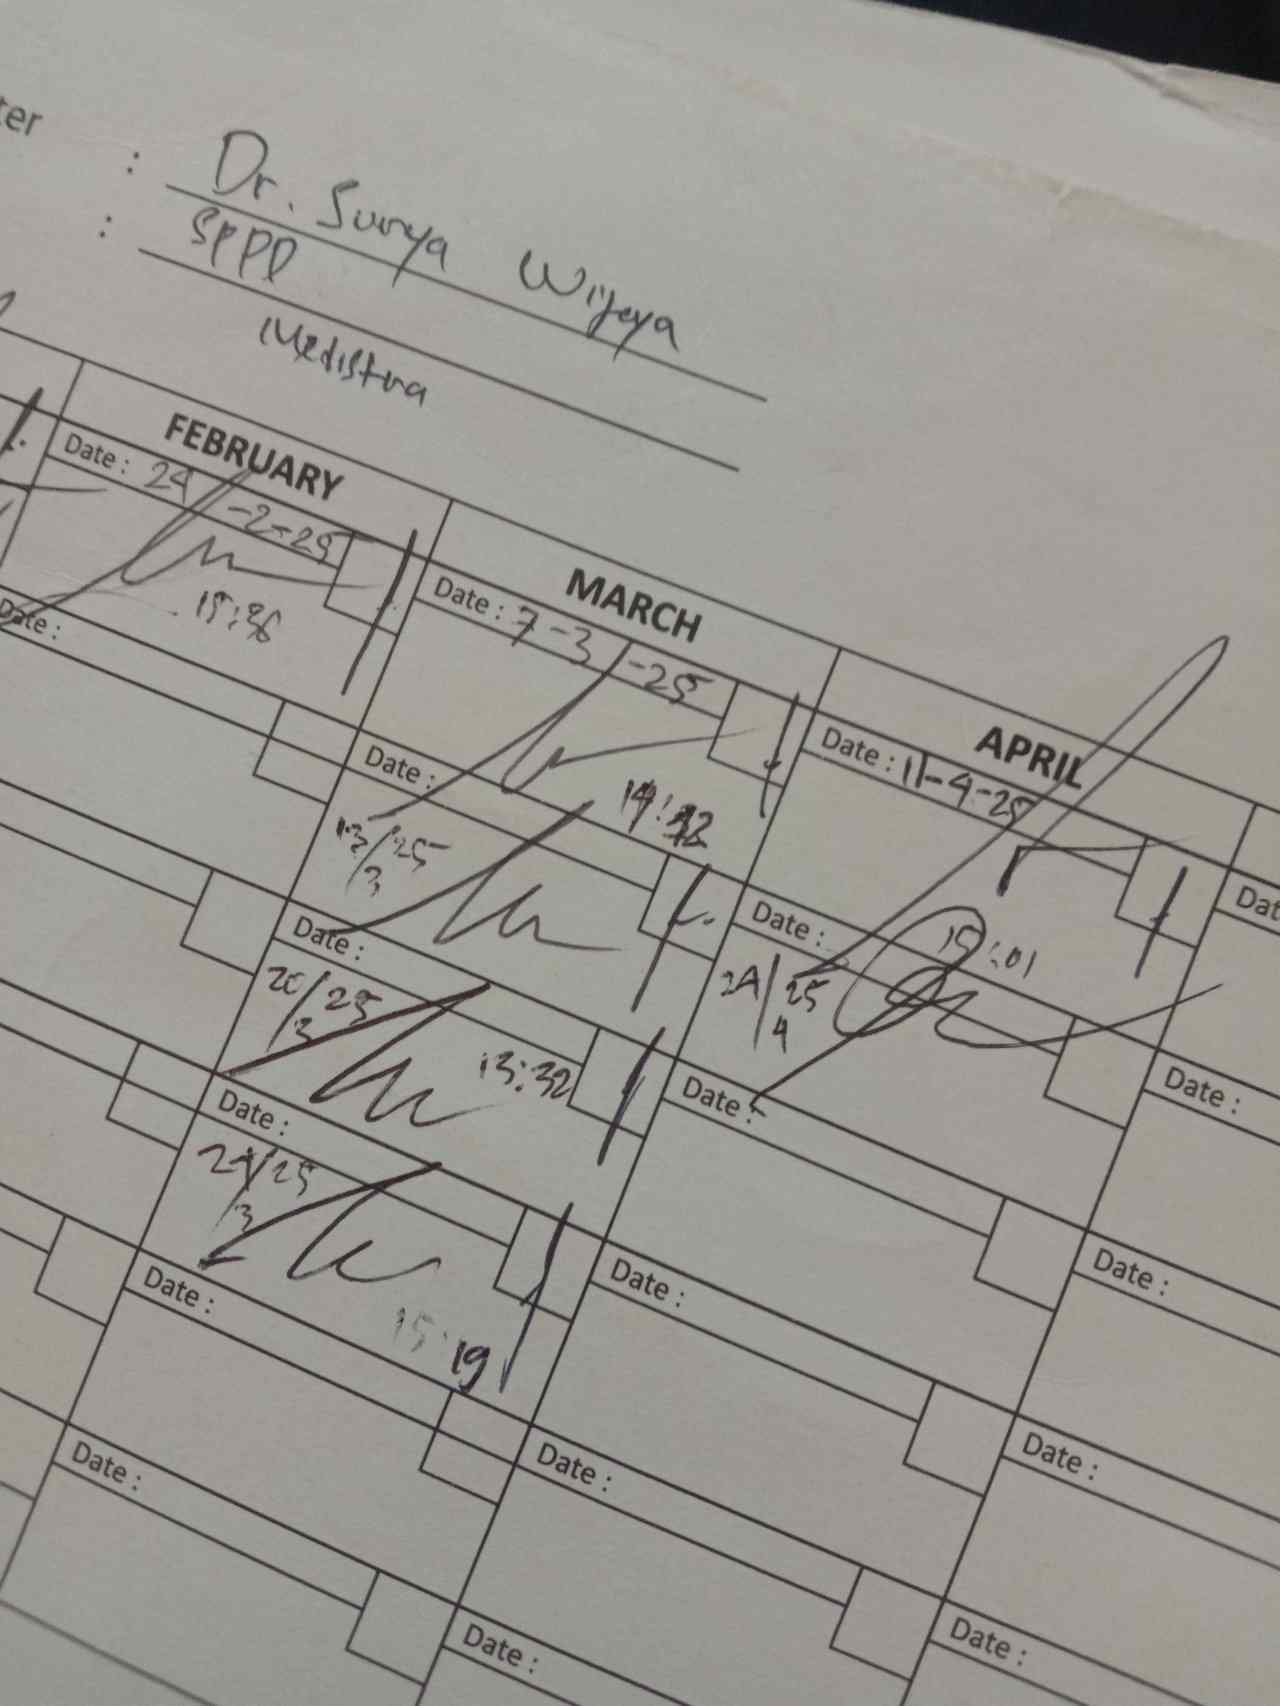 ter
: Dr. Surya Wijaya
: SPPD
Medistra
FEBRUARY MARCH APRIL
Date : 24-2-25
15:36
Date : 7-3-25
Date : 11-4-25
15:01
Dat
Date :
Date :
13/3/25
Date :
24/4/25
Date :
Date :
20/3/25
13:32
Date :
Date :
Date :
24/3/25
15:19
Date :
Date :
Date :
Date :
Date :
Date :
Date :
Date :